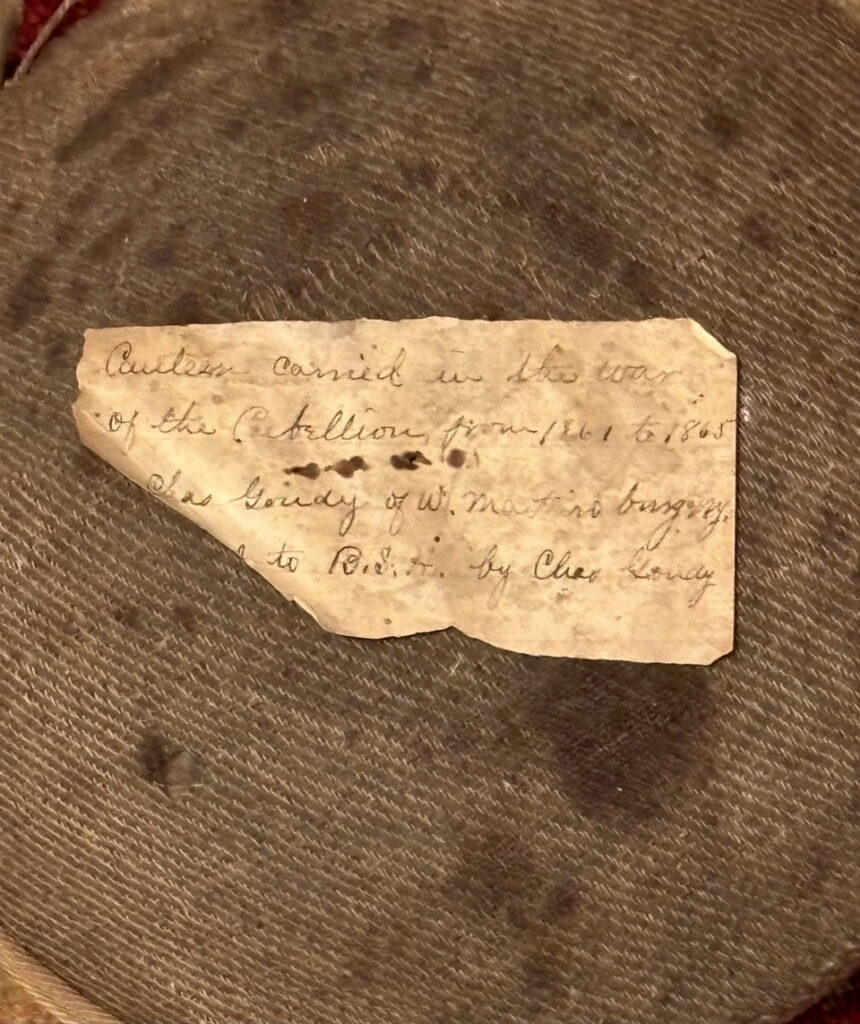 Canteen carried in the war
of the Rebellion, from 1861 to 1865
Chas Goudy of W. Martinsburg N.Y.
to B.S.H. by Chas Goudy